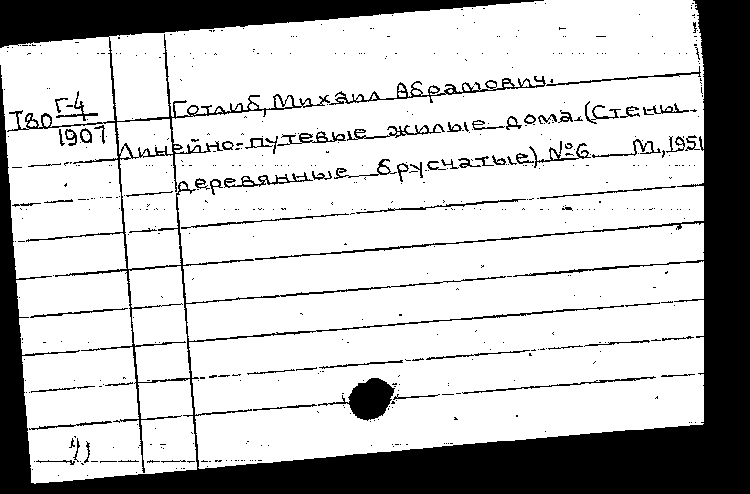 Т80 Г-4
1907
Готлиб, Михаил Абрамович.
Линейно-путевые жилые дома. (Стены
деревянные брусчатые) №6. М., 1951